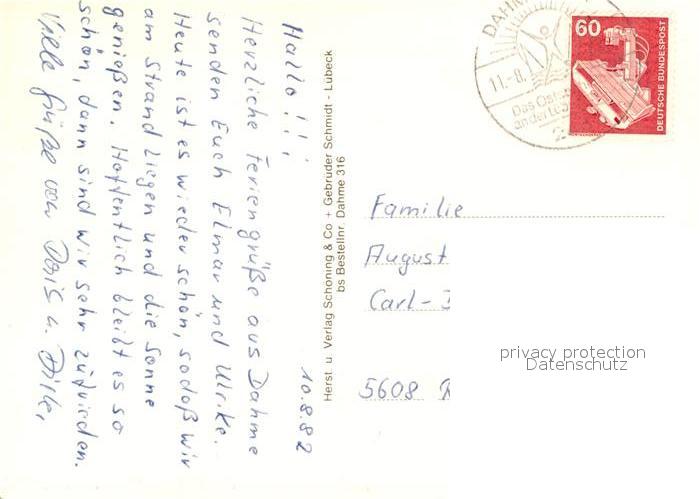 10.8.82
Hallo!!!
Herzliche Feriengrüße aus Dahme
senden Euch Elmar und Ulrike.
Heute ist es wieder schön, sodaß wir
am Strand liegen und die Sonne
genießen. Hoffentlich bleibt es so
schön, dann sind wir sehr zufrieden.
Viele Grüße von Doris u.
Herst. u Verlag Schöning & Co + Gebrüder Schmidt - Lübeck
bs Bestellnr. Dahme 316
DAHM
11.-8.
Das Osts
an der Lüb
60
DEUTSCHE BUNDESPOST
Familie
August
Carl-
5608
privacy protection
Datenschutz